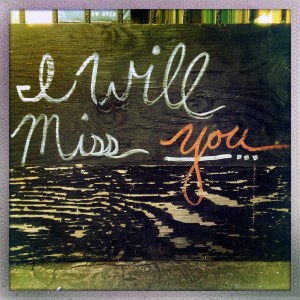 I Will
Miss you...